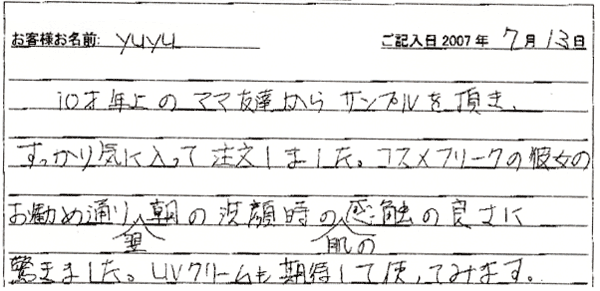 お客様お名前: yuyu ご記入日 2007年 7月 13日
10才年上のママ友達からサンプルを頂き、
すっかり気に入って注文しました。コスメフリークの彼女の
お勧め通り翌朝の洗顔時の肌の感触の良さに
驚きました。UVクリームも期待して使ってみます。